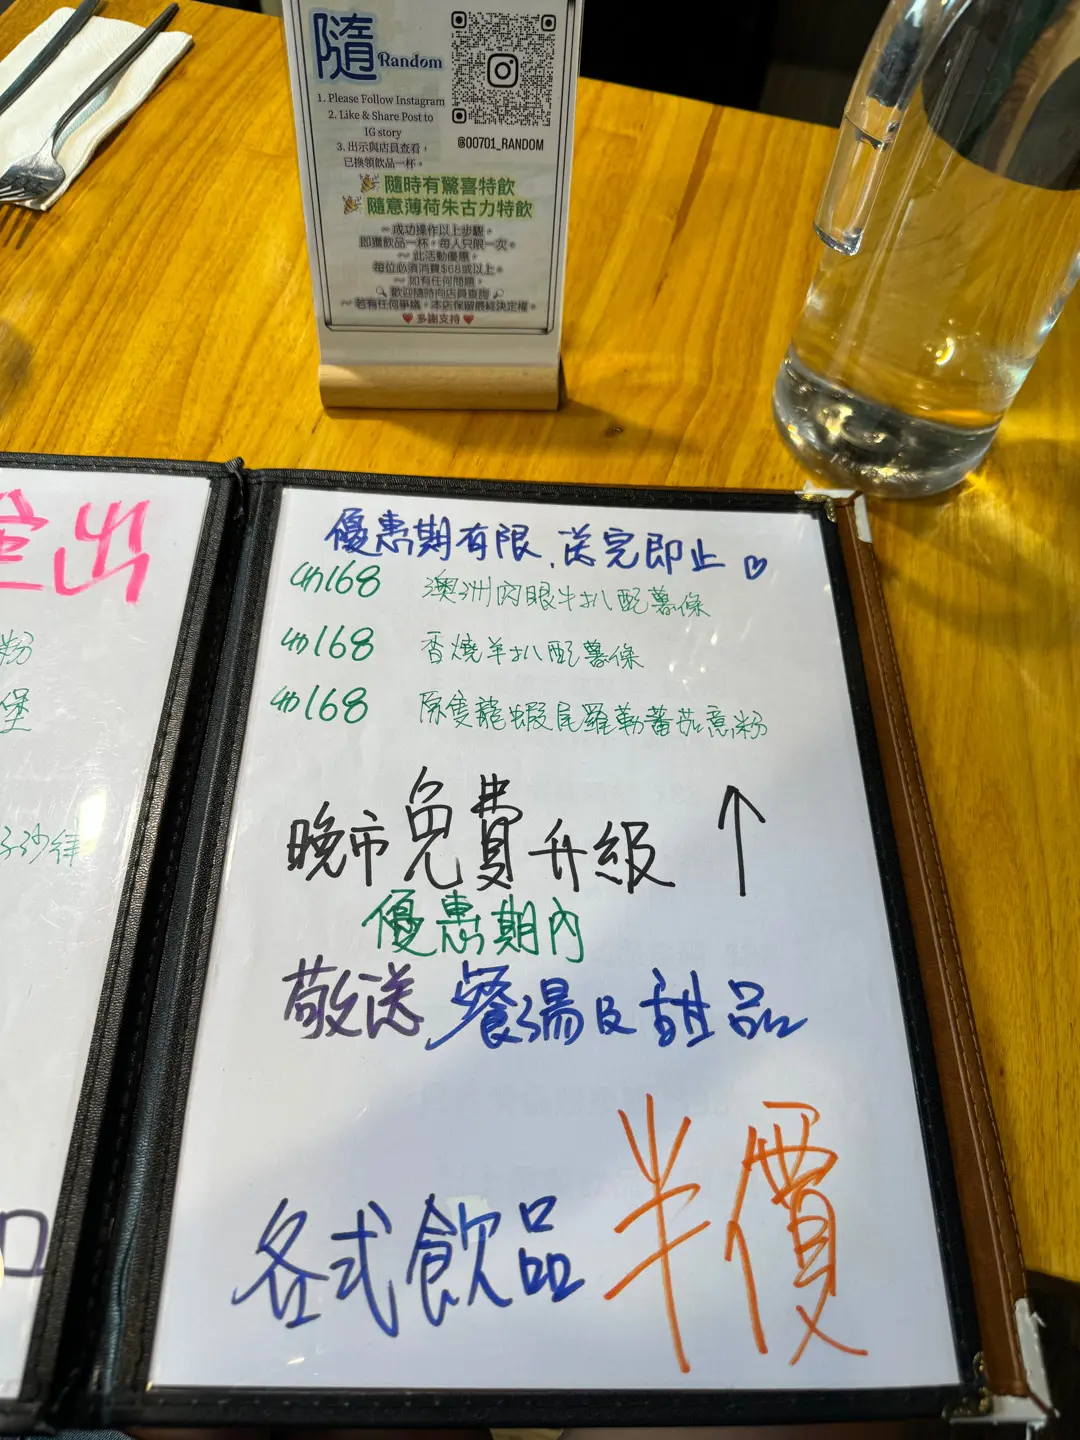 隨 Random
1. Please Follow Instagram
2. Like & Share Post to
IG story
3. 出示與店員查看,
已換領飲品一杯。
@00701_RANDOM
隨時有驚喜特飲
隨意薄荷朱古力特飲
~成功操作以上步驟,
即獲飲品一杯,每人只限一次。
~此活動優惠,
每位必須消費$68或以上。
~如有任何問題,
歡迎隨時向店員查詢
~若有任何爭議,本店保留最終決定權。
多謝支持
出
粉
堡
子沙律
優惠期有限,送完即止♡
168 澳洲肉眼牛扒配薯條
168 香燒羊扒配薯條
168 原隻龍蝦尾羅勒蕃茄意粉
晚市免費升級 ↑
優惠期內
敬送 餐湯及甜品
各式飲品 半價